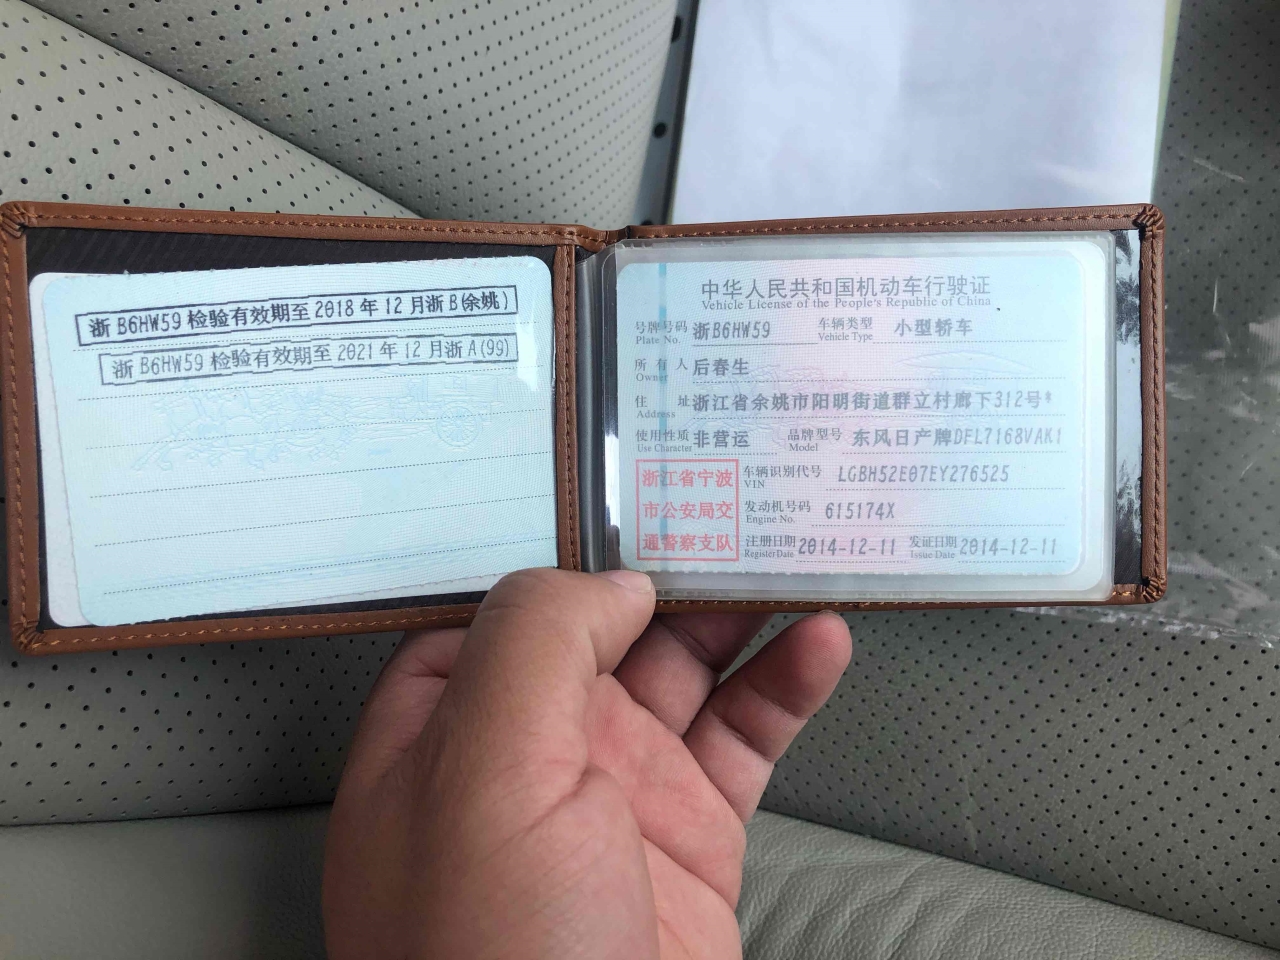 浙 B6HW59 检验有效期至 2018 年 12 月浙 B(余姚)
浙 B6HW59 检验有效期至 2021 年 12 月浙 A(99)
中华人民共和国机动车行驶证
Vehicle License of the People's Republic of China
号牌号码 浙B6HW59 车辆类型 小型轿车
Plate No. Vehicle Type
所 有 人 后春生
Owner
住 址 浙江省余姚市阳明街道群立村廊下312号*
Address
使用性质 非营运 品牌型号 东风日产牌DFL7168VAK1
Use Character Model
浙江省宁波
市公安局交
通警察支队
车辆识别代号 LGBH52E07EY276525
VIN
发动机号码 615174X
Engine No.
注册日期 2014-12-11 发证日期 2014-12-11
Register Date Issue Date